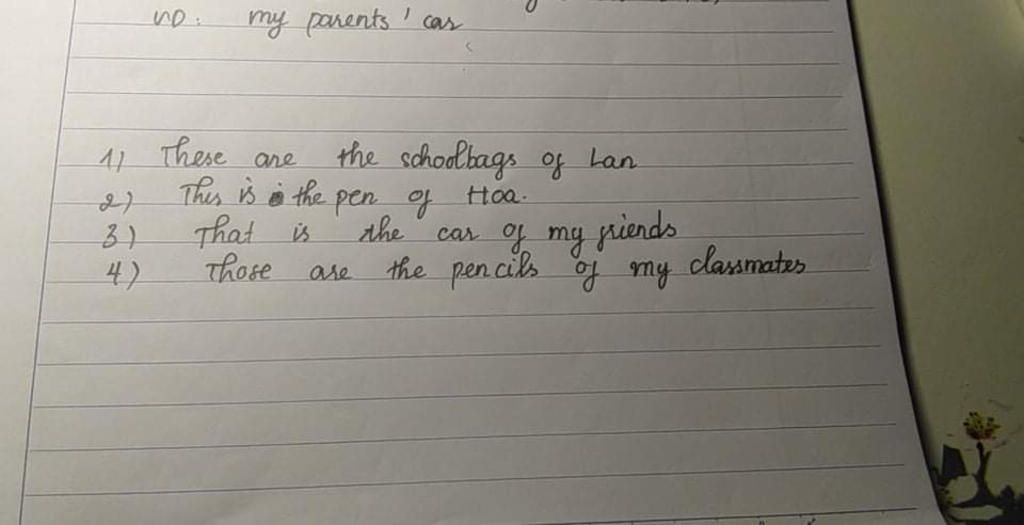 VD: my parents' car
1) These are the schoolbags of Lan
2) This is the pen of Hoa.
3) That is the car of my friends
4) Those are the pencils of my classmates